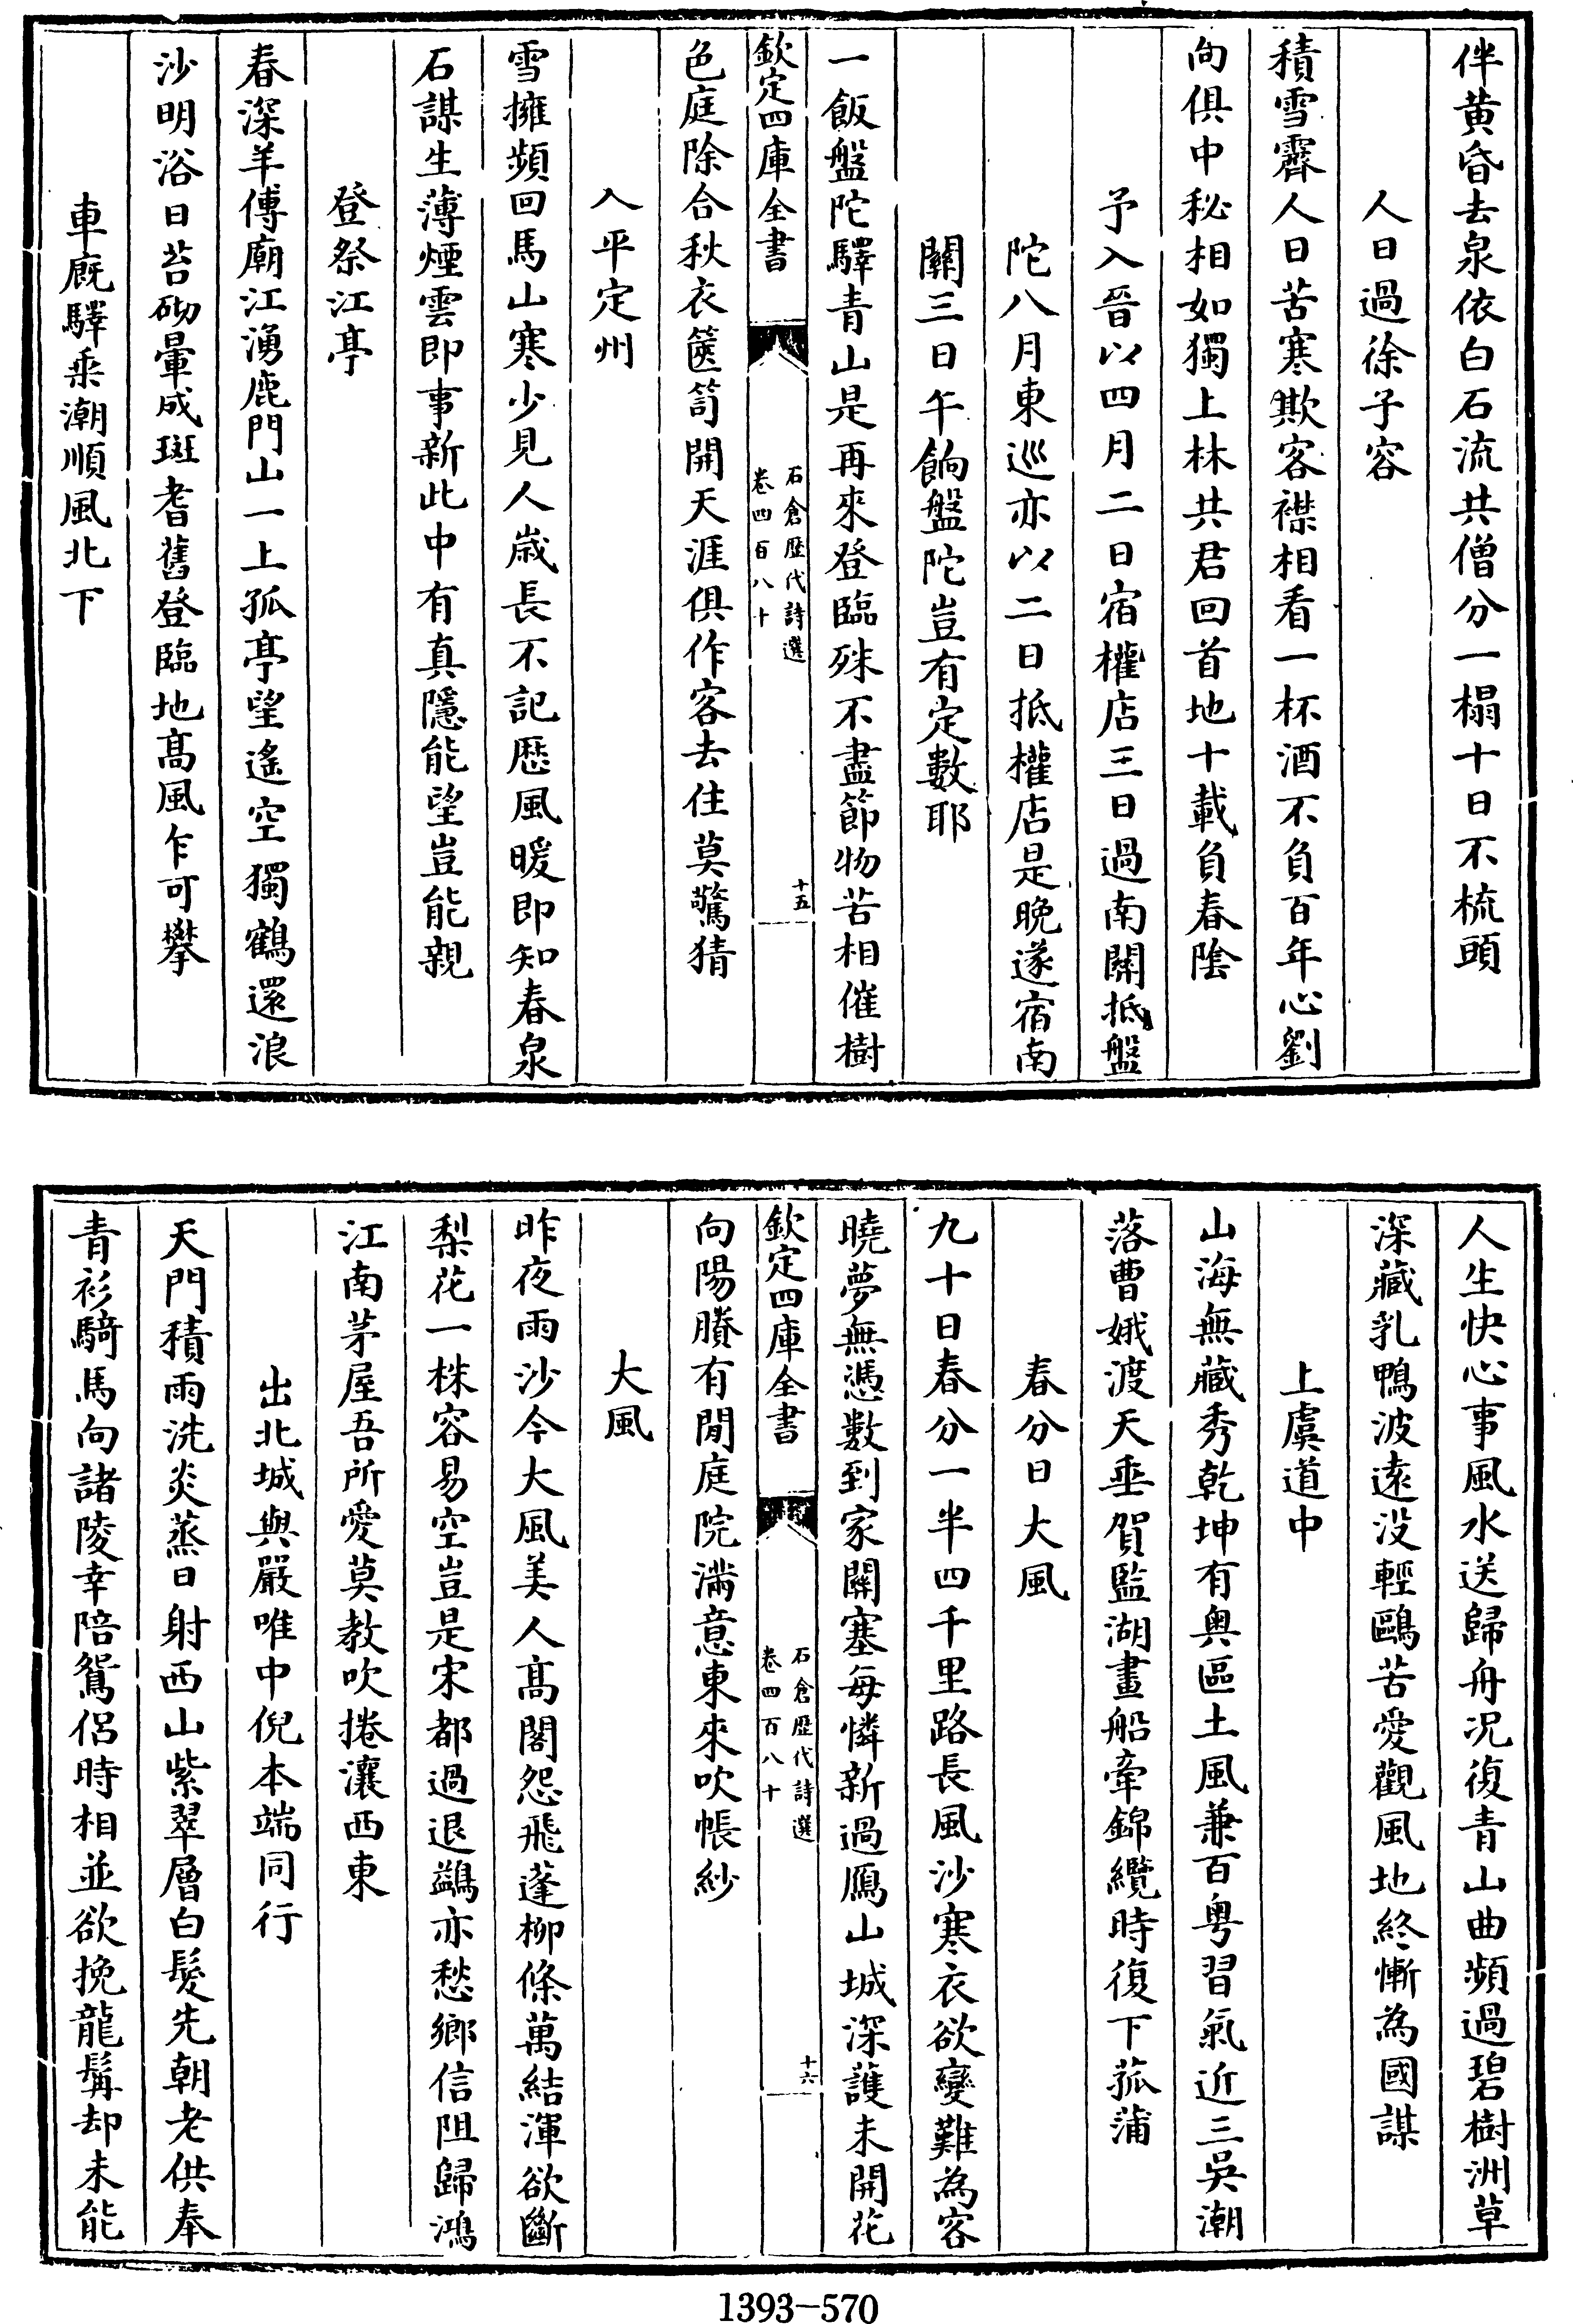 伴黄昏去泉依白石流共僧分一榻十日不梳頭
人日過徐子容
積雪霽人日苦寒欺客襟相看一杯酒不負百年心劉
向俱中秘相如獨上林共君回首地十載負春陰
予入晉以四月二日宿權店三日過南關抵盤
陀八月東巡亦以二日抵權店是晚遂宿南
關三日午餉盤陀豈有定數耶
一飯盤陀驛青山是再來登臨殊不盡節物苦相催樹
欽定四庫全書
石倉歷代詩選
卷四百八十
十五
色庭除合秋衣篋笥開天涯俱作客去住莫驚猜
入平定州
雪擁頻回馬山寒少見人歲長不記歷風暖即知春泉
石謀生薄煙雲即事新此中有真隱能望豈能親
登祭江亭
春深羊傅廟江湧鹿門山一上孤亭望遙空獨鶴還浪
沙明浴日苔砌暈成斑耆舊登臨地高風乍可攀
車廐驛乗潮順風北下
人生快心事風水送歸舟况復青山曲頻過碧樹洲草
深藏乳鴨波遠没輕鷗苦愛觀風地終慚為國謀
上虞道中
山海無藏秀乾坤有奥區土風兼百粤習氣近三吳潮
落曹娥渡天垂賀監湖畫船牽錦纜時復下菰蒲
春分日大風
九十日春分一半四千里路長風沙寒衣欲變難為客
曉夢無憑數到家關塞每憐新過鴈山城深護未開花
欽定四庫全書
石倉歷代詩選
卷四百八十
十六
向陽賸有閒庭院滿意東來吹帳紗
大風
昨夜雨沙今大風美人高閣怨飛蓬柳條萬結渾欲斷
梨花一株容易空豈是宋都過退鷁亦愁鄉信阻歸鴻
江南茅屋吾所愛莫教吹捲瀼西東
出北城與嚴唯中倪本端同行
天門積雨洗炎蒸日射西山紫翠層白髮先朝老供奉
青衫騎馬向諸陵幸陪鴛侶時相並欲挽龍髯却未能
1393-570